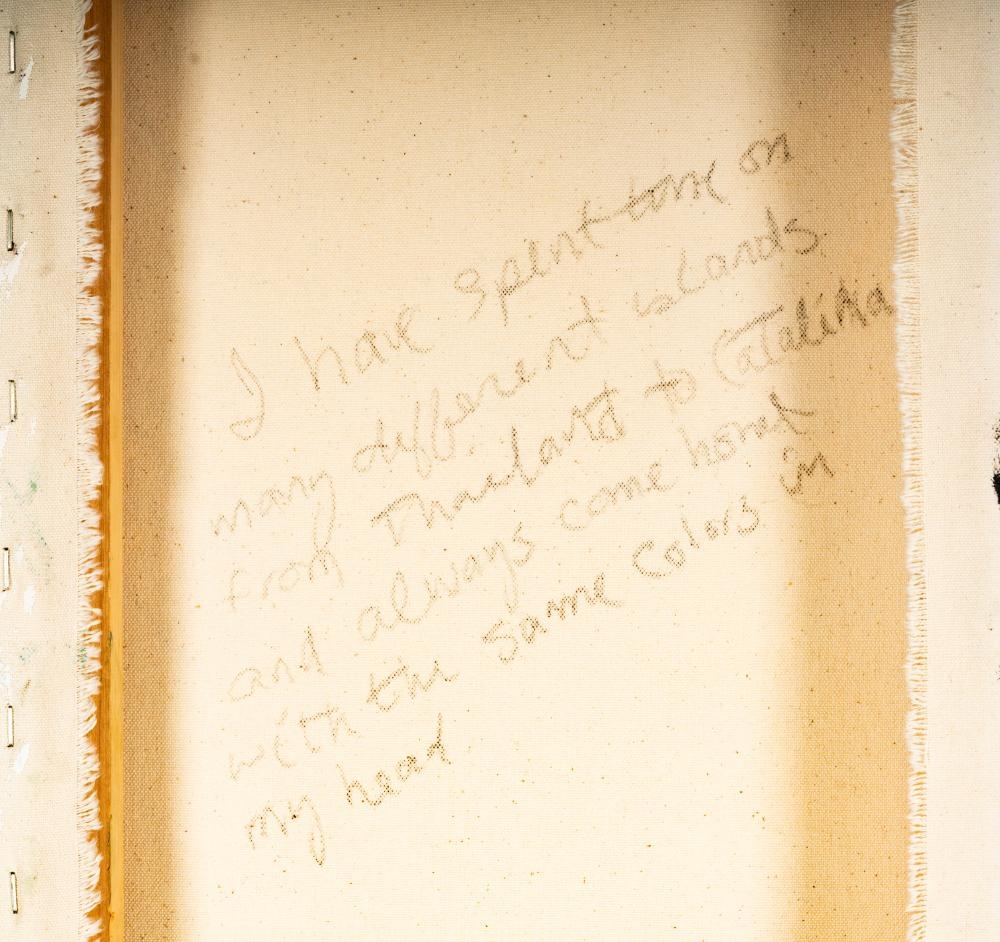 I have spent time on
many different islands
from Thailand to Catalina
and always come home
with the same colors in
my head